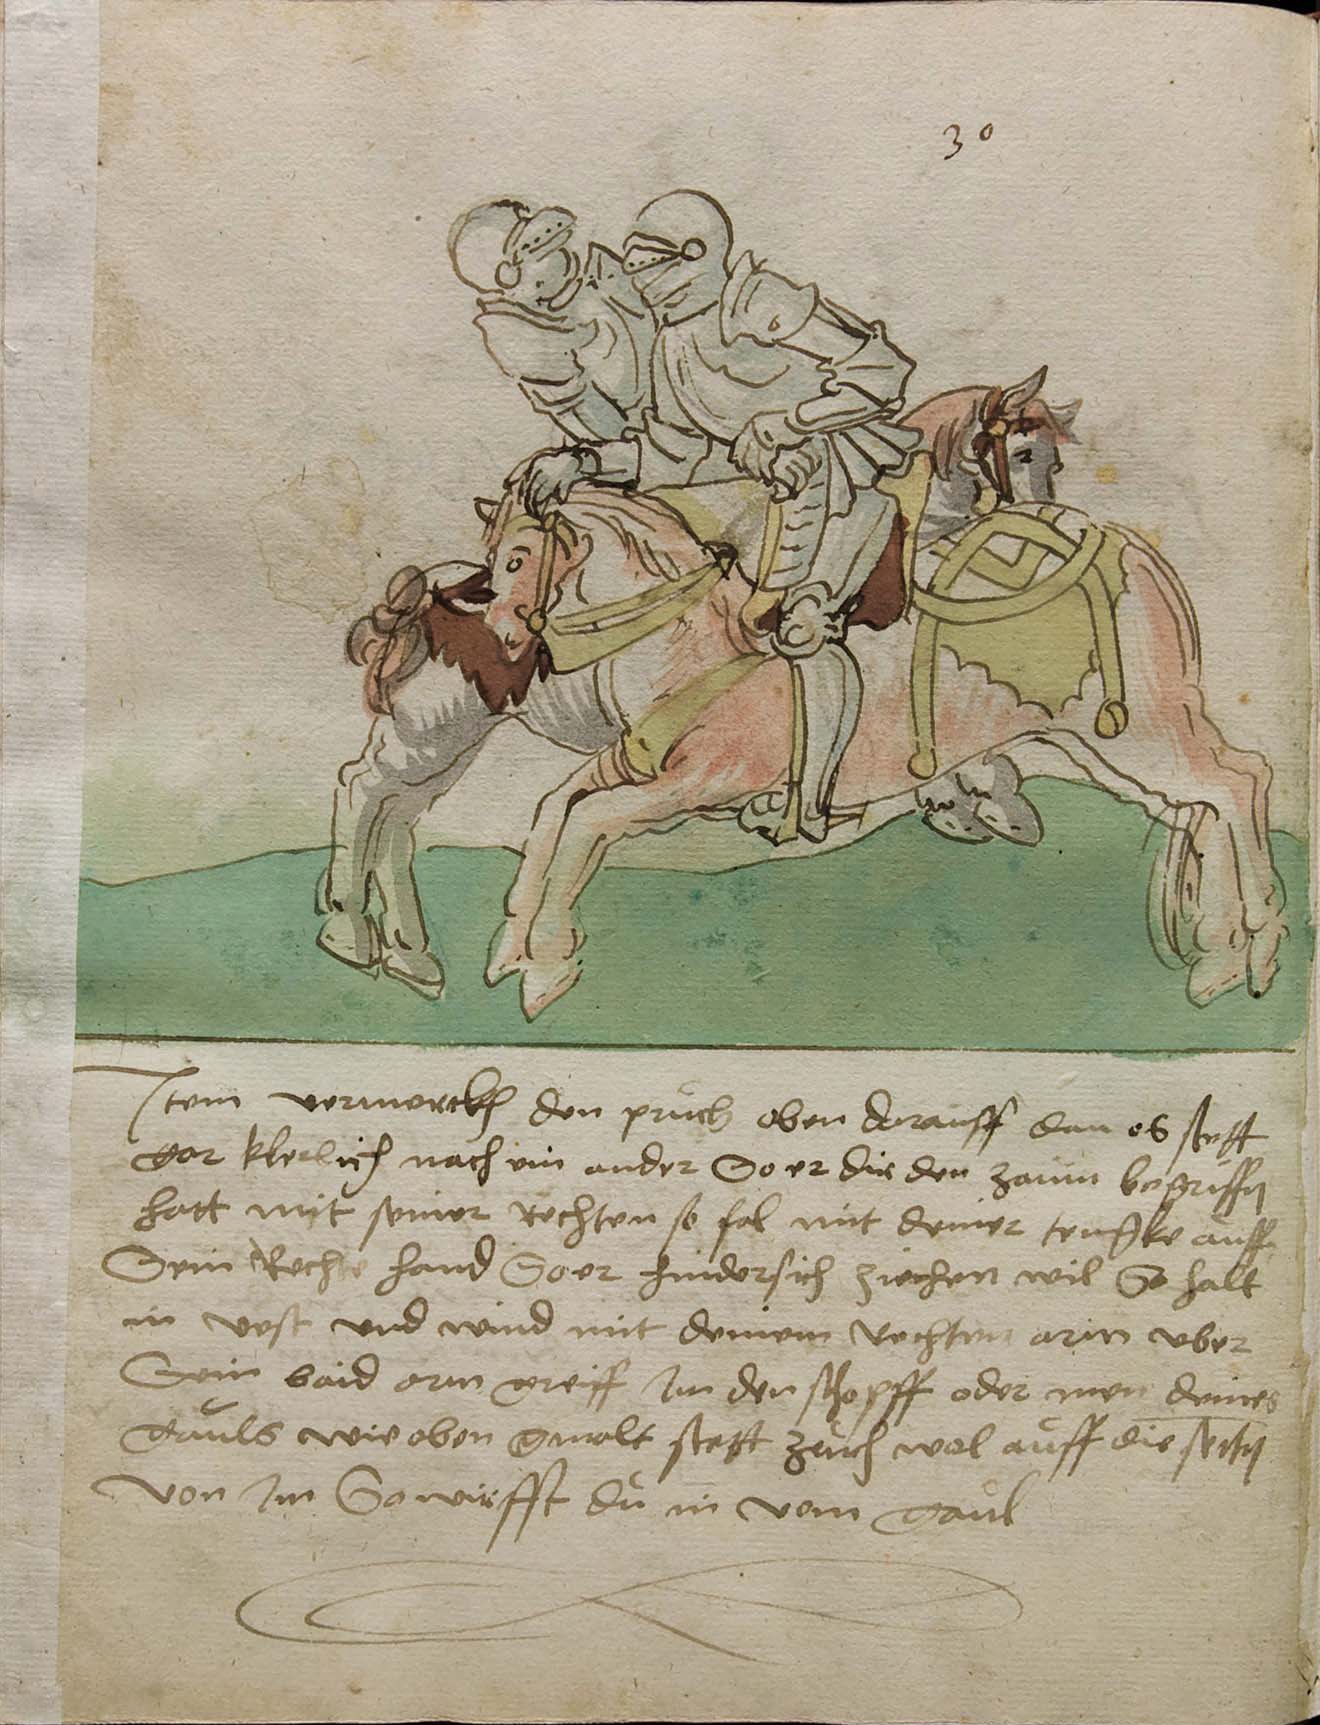 30
Item vermerckh den pruch oben darauff dan es stett
gar klerlich nach ein ander So er dir den zaum begriffen
hatt mit seiner Rechten so fal mit deiner tenncke auff
Sein Rechte hand So er hindersich ziechen wil So halt
in vest und wind mit deinem Rechten arm vber
Sein baid arm greiff im den schopff oder men deines
gauls wie oben gmalt stett zeuch wol auff die seitn
von im So wirffst du in vom gaul